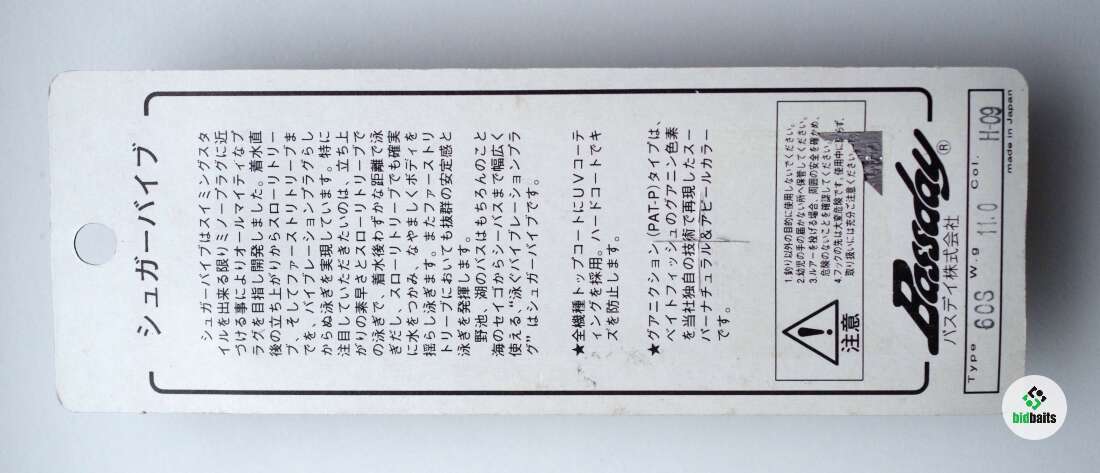 シュガーバイブ
シュガーバイブはスイミングスタ
イルを出来る限りミノープラグに近
づける事によりオールマイティなプ
ラグを目指し開発しました。着水直
後の立ち上がりからスローリトリー
ブ、そしてファーストリトリーブま
でを、バイブレーションプラグらし
からぬ泳ぎを実現しています。特に
注目していただきたいのは、立ち上
がりの素早さとスローリトリーブで
の泳ぎで、着水後わずかな距離で泳
ぎだし、スローリトリーブでも確実
に水をつかみ、なやましくボディを
揺らし泳ぎます。またファーストリ
トリーブにおいても抜群の安定感と
泳ぎを発揮します。
野池、湖のバスはもちろんのこと
海のセイゴからシーバスまで幅広く
使える、“泳ぐバイブレーションプラ
グ”はシュガーバイブです。
★全機種トップコートにUVコーテ
ィングを採用。ハードコートでキ
ズを防止します。
★グアニクション(PAT-P)タイプは、
ベイトフィッシュのグアニン色素
を当社独自の技術で再現したスー
パーナチュラル&アピールカラー
です。
注意
1. 釣り以外の目的に使用しないでください。
2. 幼児の手の届かない所へ保管してください。
3. ルアーを投げる場合、周囲の安全を確かめ、
危険のないことを確認してください。
4. フックの先は大変危険です。使用中に限らず、
取り扱いには充分ご注意ください。
Bassday ®
バスデイ株式会社
Type 60S W.g 11.0 Col. H-09
made in Japan
bidbaits